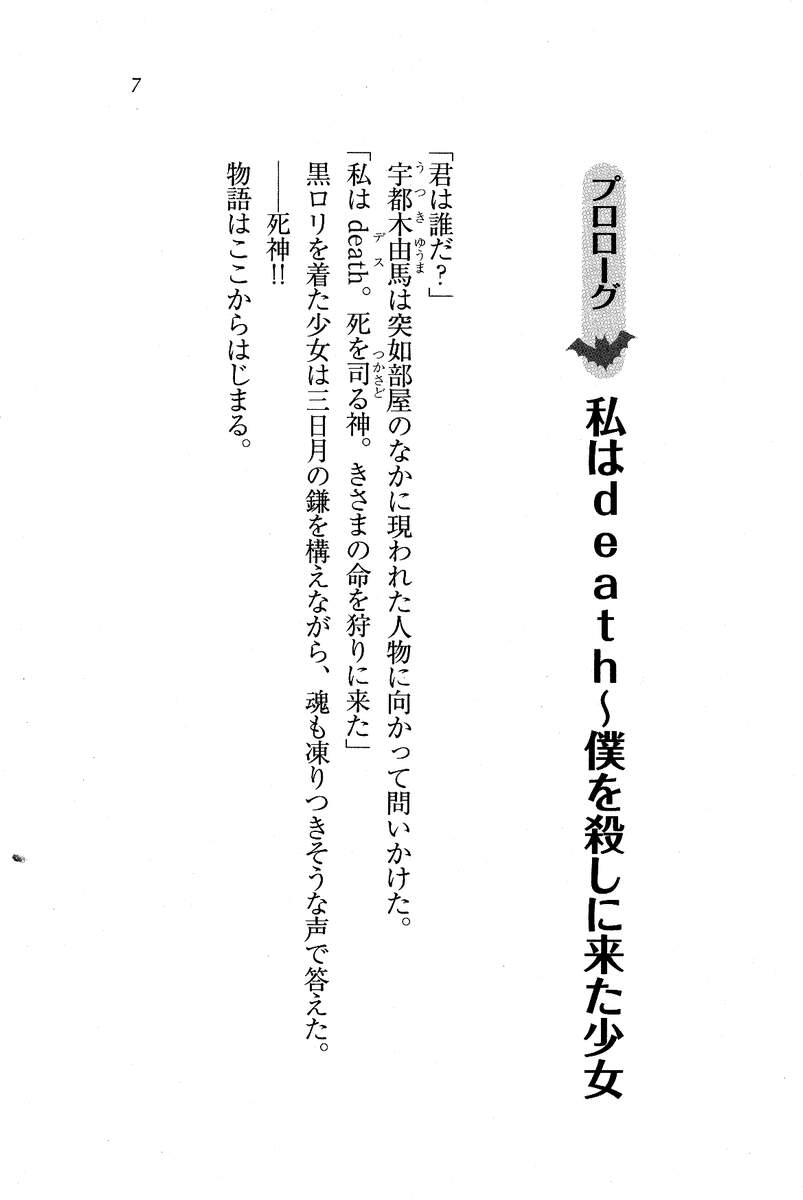 プロローグ
私はdeath～僕を殺しに来た少女
「君は誰だ？」
宇都木由馬は突如部屋のなかに現われた人物に向かって問いかけた。
うつきゆうま
「私はdeath。死を司る神。きさまの命を狩りに来た」
デス
つかさど
黒ロリを着た少女は三日月の鎌を構えながら、魂も凍りつきそうな声で答えた。
――死神!!
物語はここからはじまる。
7